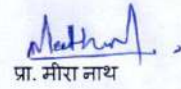 प्रा. मीरा नाथ